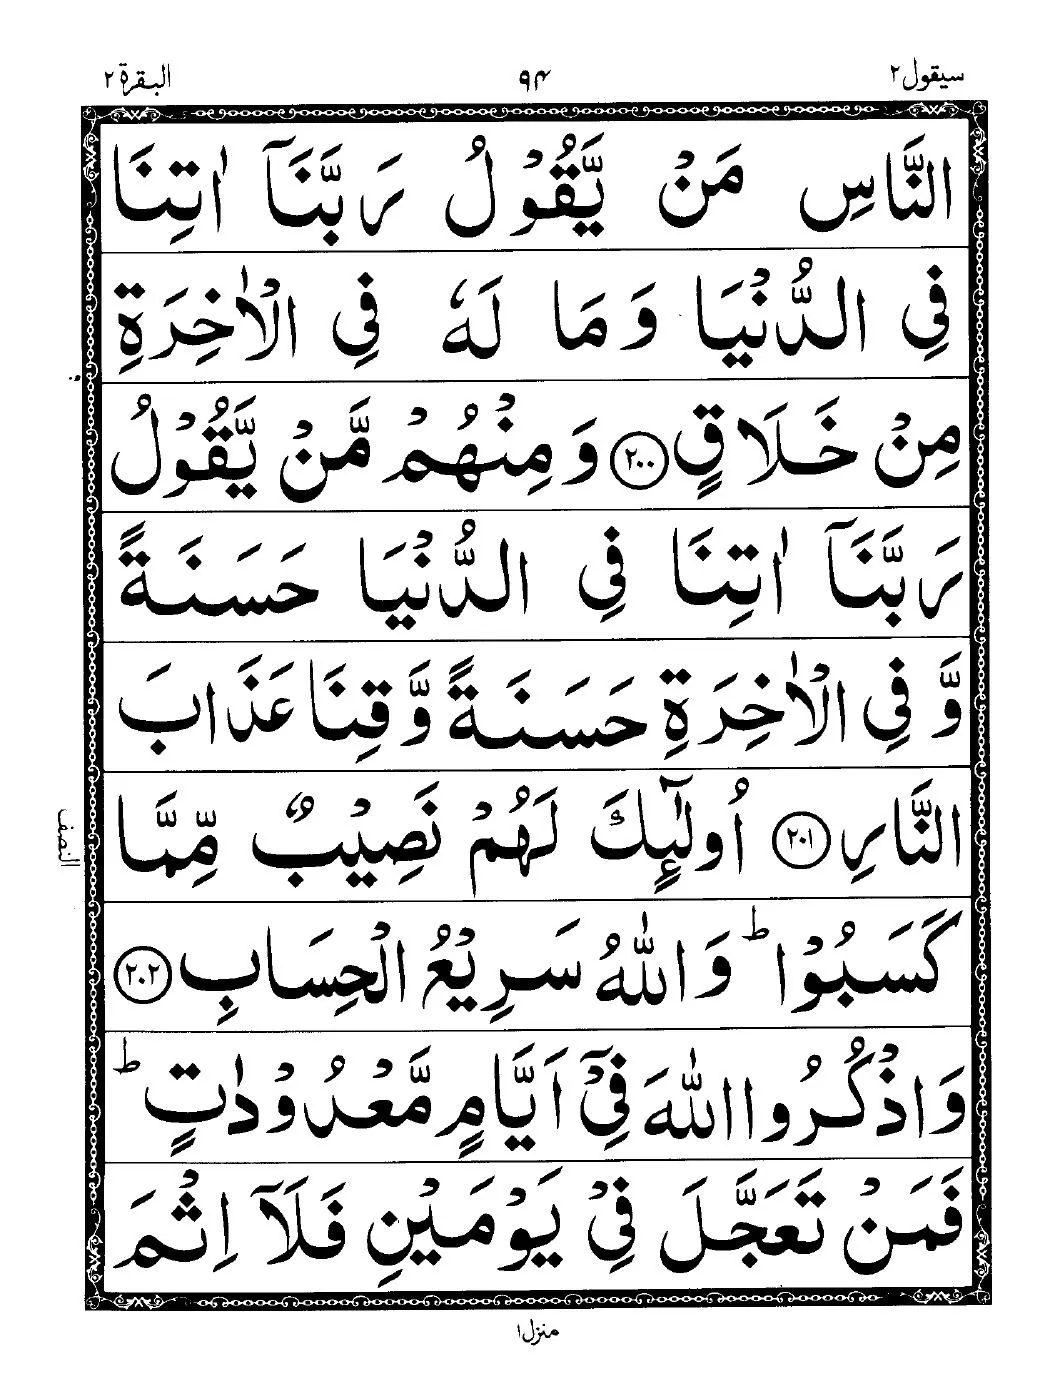 سيقول ٢
٩٤
البقرة ٢
النَّاسِ مَنْ يَّقُوْلُ رَبَّنَاۤ اٰتِنَا
فِى الدُّنْيَا وَمَا لَهٗ فِى الْاٰخِرَةِ
مِنْ خَلَاقٍ ٢٠٠ وَمِنْهُمْ مَّنْ يَّقُوْلُ
رَبَّنَاۤ اٰتِنَا فِى الدُّنْيَا حَسَنَةً
وَّفِى الْاٰخِرَةِ حَسَنَةً وَّقِنَا عَذَابَ
النَّارِ ٢٠١ اُولٰٓئِكَ لَهُمْ نَصِيْبٌ مِّمَّا
كَسَبُوْا ؕ وَاللّٰهُ سَرِيْعُ الْحِسَابِ ٢٠٢
وَاذْكُرُوا اللّٰهَ فِىْۤ اَيَّامٍ مَّعْدُوْدٰتٍ ؕ
فَمَنْ تَعَجَّلَ فِىْ يَوْمَيْنِ فَلَاۤ اِثْمَ
النصف
منزل ١